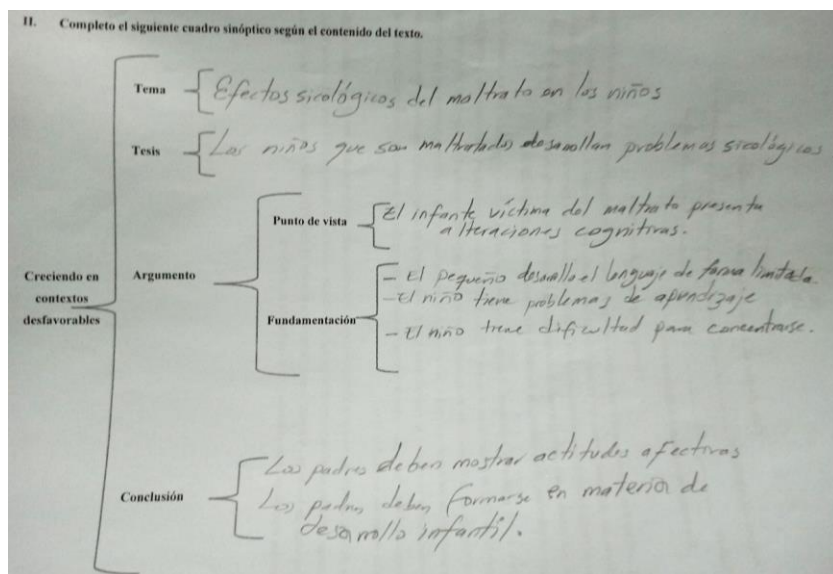 II. Completo el siguiente cuadro sinóptico según el contenido del texto.
Tema
Efectos sicológicos del maltrato en los niños
Tesis
Los niños que son maltratados desarrollan problemas sicológicos
Creciendo en
contextos
desfavorables
Argumento
Punto de vista
El infante víctima del maltrato presenta
alteraciones cognitivas.
Fundamentación
- El pequeño desarrolla el lenguaje de forma limitada.
- El niño tiene problemas de aprendizaje
- El niño tiene dificultad para concentrarse.
Conclusión
Los padres deben mostrar actitudes afectivas
Los padres deben formarse en materia de
desarrollo infantil.